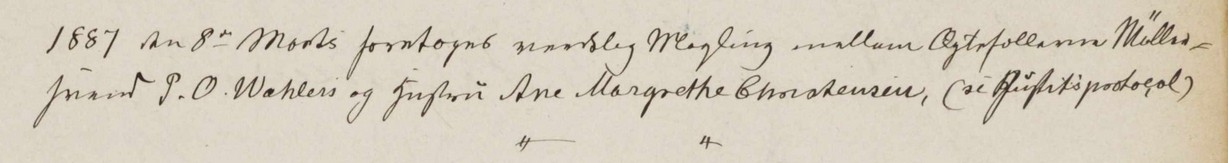 1887 den 8de Marts foretoges verdslig Mægling mellem Ægtefollerne Møller=
svend P. O. Wahlers og Hustru Ane Margrethe Christensen, (se Justitsprotocol)
〃 〃